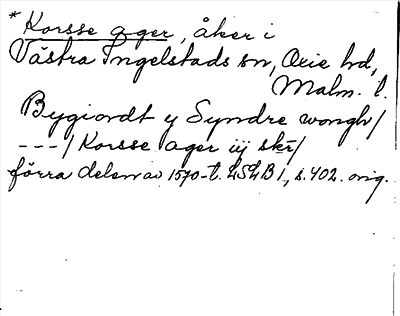 * Korsse ager, åker i
Västra Ingelstads sn, Oxie hd,
Malm. l.
Bygiordt y Syndre wongh/
---/ Korsse ager iij skr/
förra delen av 1570-t. LSLB 1, s. 402. orig.